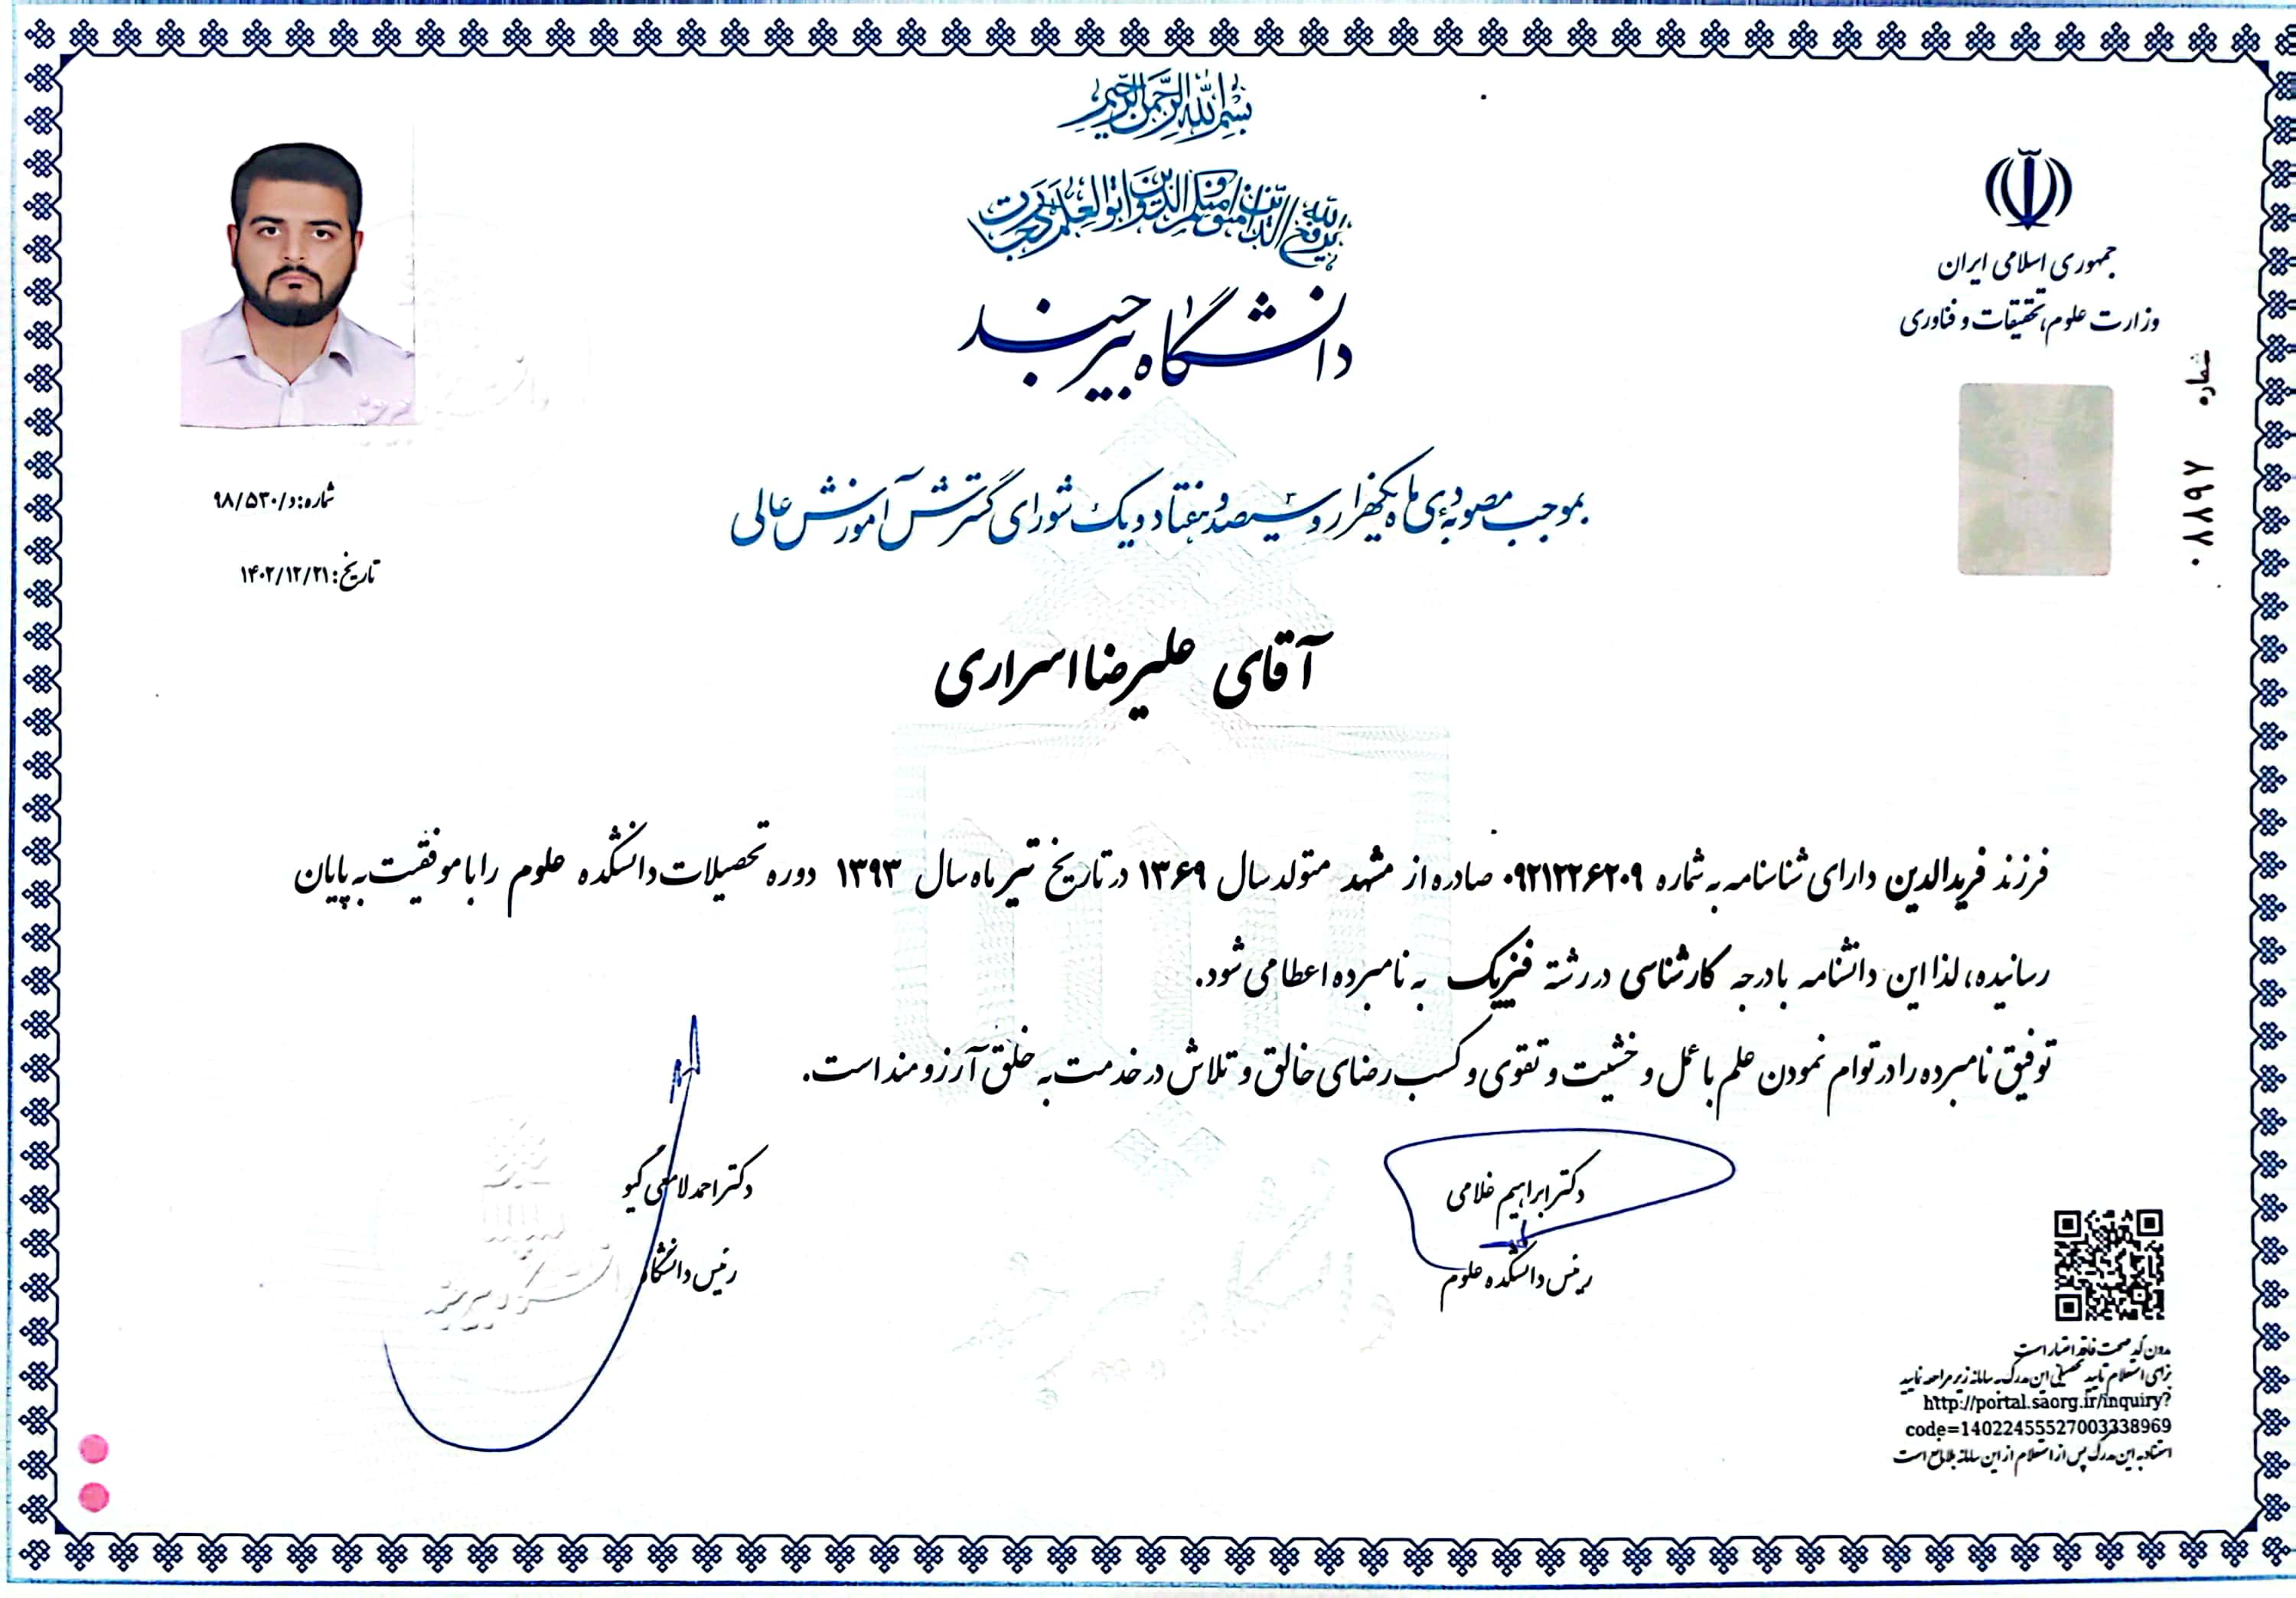 بسم الله الرحمن الرحیم
یرفع الله الذین آمنوا منکم و الذین اوتوا العلم درجات
دانشگاه بیرجند
جمهوری اسلامی ایران
وزارت علوم، تحقیقات و فناوری
شماره ۰۸۸۹۷
شماره: د/۹۸/۵۳۰
تاریخ: ۱۴۰۲/۱۲/۲۱
بموجب مصوبه‌ی ماه یکهزار و سیصد و هفتاد و یک شورای گسترش آموزش عالی
آقای علیرضا اسراری
فرزند فریدالدین دارای شناسنامه به شماره ۰۹۲۱۲۲۶۲۰۹ صادره از مشهد متولد سال ۱۳۶۹ در تاریخ تیر ماه سال ۱۳۹۳ دوره تحصیلات دانشکده علوم را با موفقیت به پایان
رسانیده، لذا این دانشنامه با درجه کارشناسی در رشته فیزیک به نامبرده اعطا می شود.
توفیق نامبرده را در توام نمودن علم با عمل و خشیت و تقوی و کسب رضای خالق و تلاش در خدمت به خلق آرزومند است.
دکتر ابراهیم غلامی
رئیس دانشکده علوم
دکتر احمد لامعی گیو
رئیس دانشگاه
بدون کد صحت فاقد اعتبار است
برای استعلام تایید تحصیلی این مدرک به سامانه زیر مراجعه نمایید
http://portal.saorg.ir/inquiry?
code=14022455527003338969
استناد به این مدرک پس از استعلام از این سامانه بلامانع است
دانشگاه بیرجند